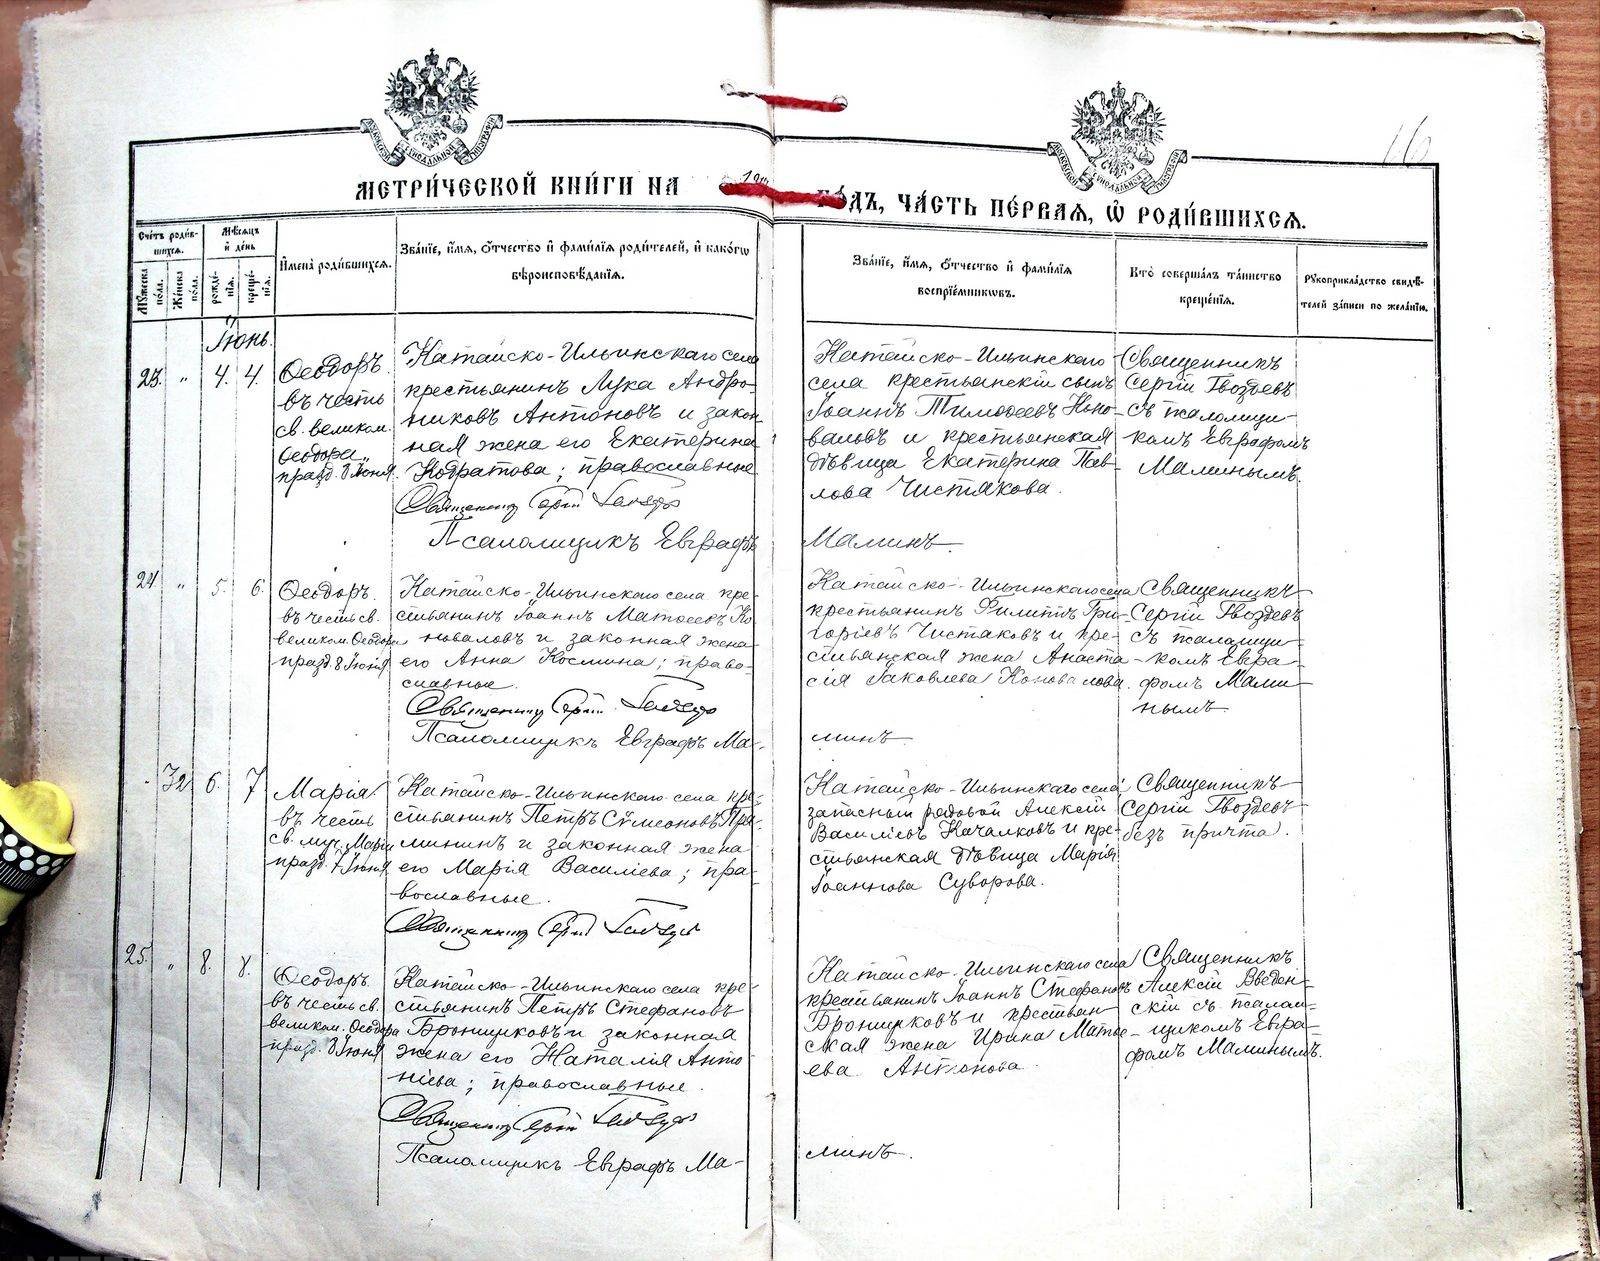 16
МОСКОВСКОЙ СѴНОДАЛЬНОЙ ТИПОГРАФІИ
МОСКОВСКОЙ СѴНОДАЛЬНОЙ ТИПОГРАФІИ
МЕТРИ́ЧЕСКОЙ КНИ́ГИ НА
ГО́ДЪ, ЧА́СТЬ ПЕ́РВАЯ, Ѡ҆ РОДИ́ВШИХСЯ.
Сче́тъ роди́в-
шихся.
Му́жеска по́ла.
Же́нска по́ла.
Мѣ́сяцъ
и҆ де́нь
рожде́-
нія.
креще́-
нія.
И҆мена̀ роди́вшихся.
Зва́ніе, и҆́мя, ѻ҆́тчество и҆ фами́лія роди́телей, и҆ како́гѡ
вѣроисповѣ́данія.
Зва́ніе, и҆́мя, ѻ҆́тчество и҆ фами́лія
воспріе́мниковъ.
Кто̀ соверша́лъ та́инство
креще́нія.
Рукоприкла́дство свидѣ́-
телей за́писи по жела́нію.
Іюнь.
23. " 4. 4.
Ѳеодоръ
въ честь
св. великом.
Ѳеодора,
празд. 8 Іюня.
Катайско-Ильинскаго села
крестьянинъ Лука Андро-
никовъ Антоновъ и закон-
ная жена его Екатерина
Кодратова; православные
Священникъ Сергій Гвоздевъ
Псаломщикъ Евграфъ
Катайско-Ильинскаго
села крестьянскій сынъ
Іоаннъ Тимоѳеевъ Коно-
валовъ и крестьянская
дѣвица Екатерина Пав-
лова Чистякова.
Малинъ
Священникъ
Сергій Гвоздевъ
съ псаломщи-
комъ Евграфомъ
Малинымъ.
24 " 5. 6.
Ѳеодоръ.
въ честь св.
великом. Ѳеодора
празд. 8 Іюня
Катайско-Ильинскаго села кре-
стьянинъ Іоаннъ Матѳеевъ Ко-
новаловъ и законная жена
его Анна Космина; право-
славные.
Священникъ Сергій Гвоздевъ
Псаломщикъ Евграфъ Ма-
Катайско-Ильинскаго села
крестьянинъ Филиппъ Гри-
горіевъ Чистяковъ и кре-
стьянская жена Анаста-
сія Іаковлева Коновалова.
линъ
Священникъ
Сергій Гвоздевъ
съ псаломщи-
комъ Евгра-
фомъ Мали-
нымъ.
32 6. 7
Марія.
въ честь
св. муч. Маріи
празд. 7 Іюня
Катайско-Ильинскаго села кре-
стьянинъ Петръ Сѵмеоновъ
и законная жена
его Марія Василіева; пра-
вославные.
Священникъ Сергій Гвоздевъ
Катайско-Ильинскаго села
запасный рядовой Алексій
Василіевъ Качалковъ и кре-
стьянская дѣвица Марія
Іоаннова Суворова.
Священникъ
Сергій Гвоздевъ
безъ причта.
25. " 8. 8.
Ѳеодоръ.
въ честь св.
великом. Ѳеодора
празд. 8 Іюня
Катайско-Ильинскаго села кре-
стьянинъ Петръ Стефановъ
Бронщиковъ и законная
жена его Наталія Анто-
ніева; православные.
Священникъ Сергій Гвоздевъ
Псаломщикъ Евграфъ Ма-
Катайско-Ильинскаго села
крестьянинъ Іоаннъ Стефановъ
Бронщиковъ и крестьян-
ская жена Ирина Матѳе-
ева Антонова.
линъ.
Священникъ
Алексій Введен-
скій съ псалом-
щикомъ Евгра-
фомъ Малинымъ.